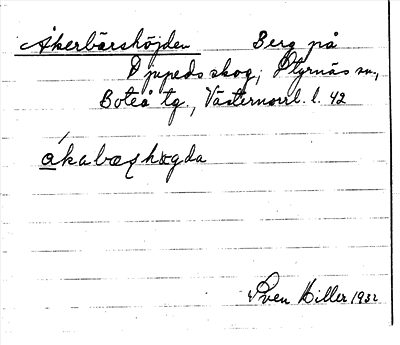 Åkerbärshöjden Berg på
Djupeds skog, Styrnäs sn.,
Boteå tg., Västernorrl. l. 42
ákabæʂhøgda
Sven Hiller 1932